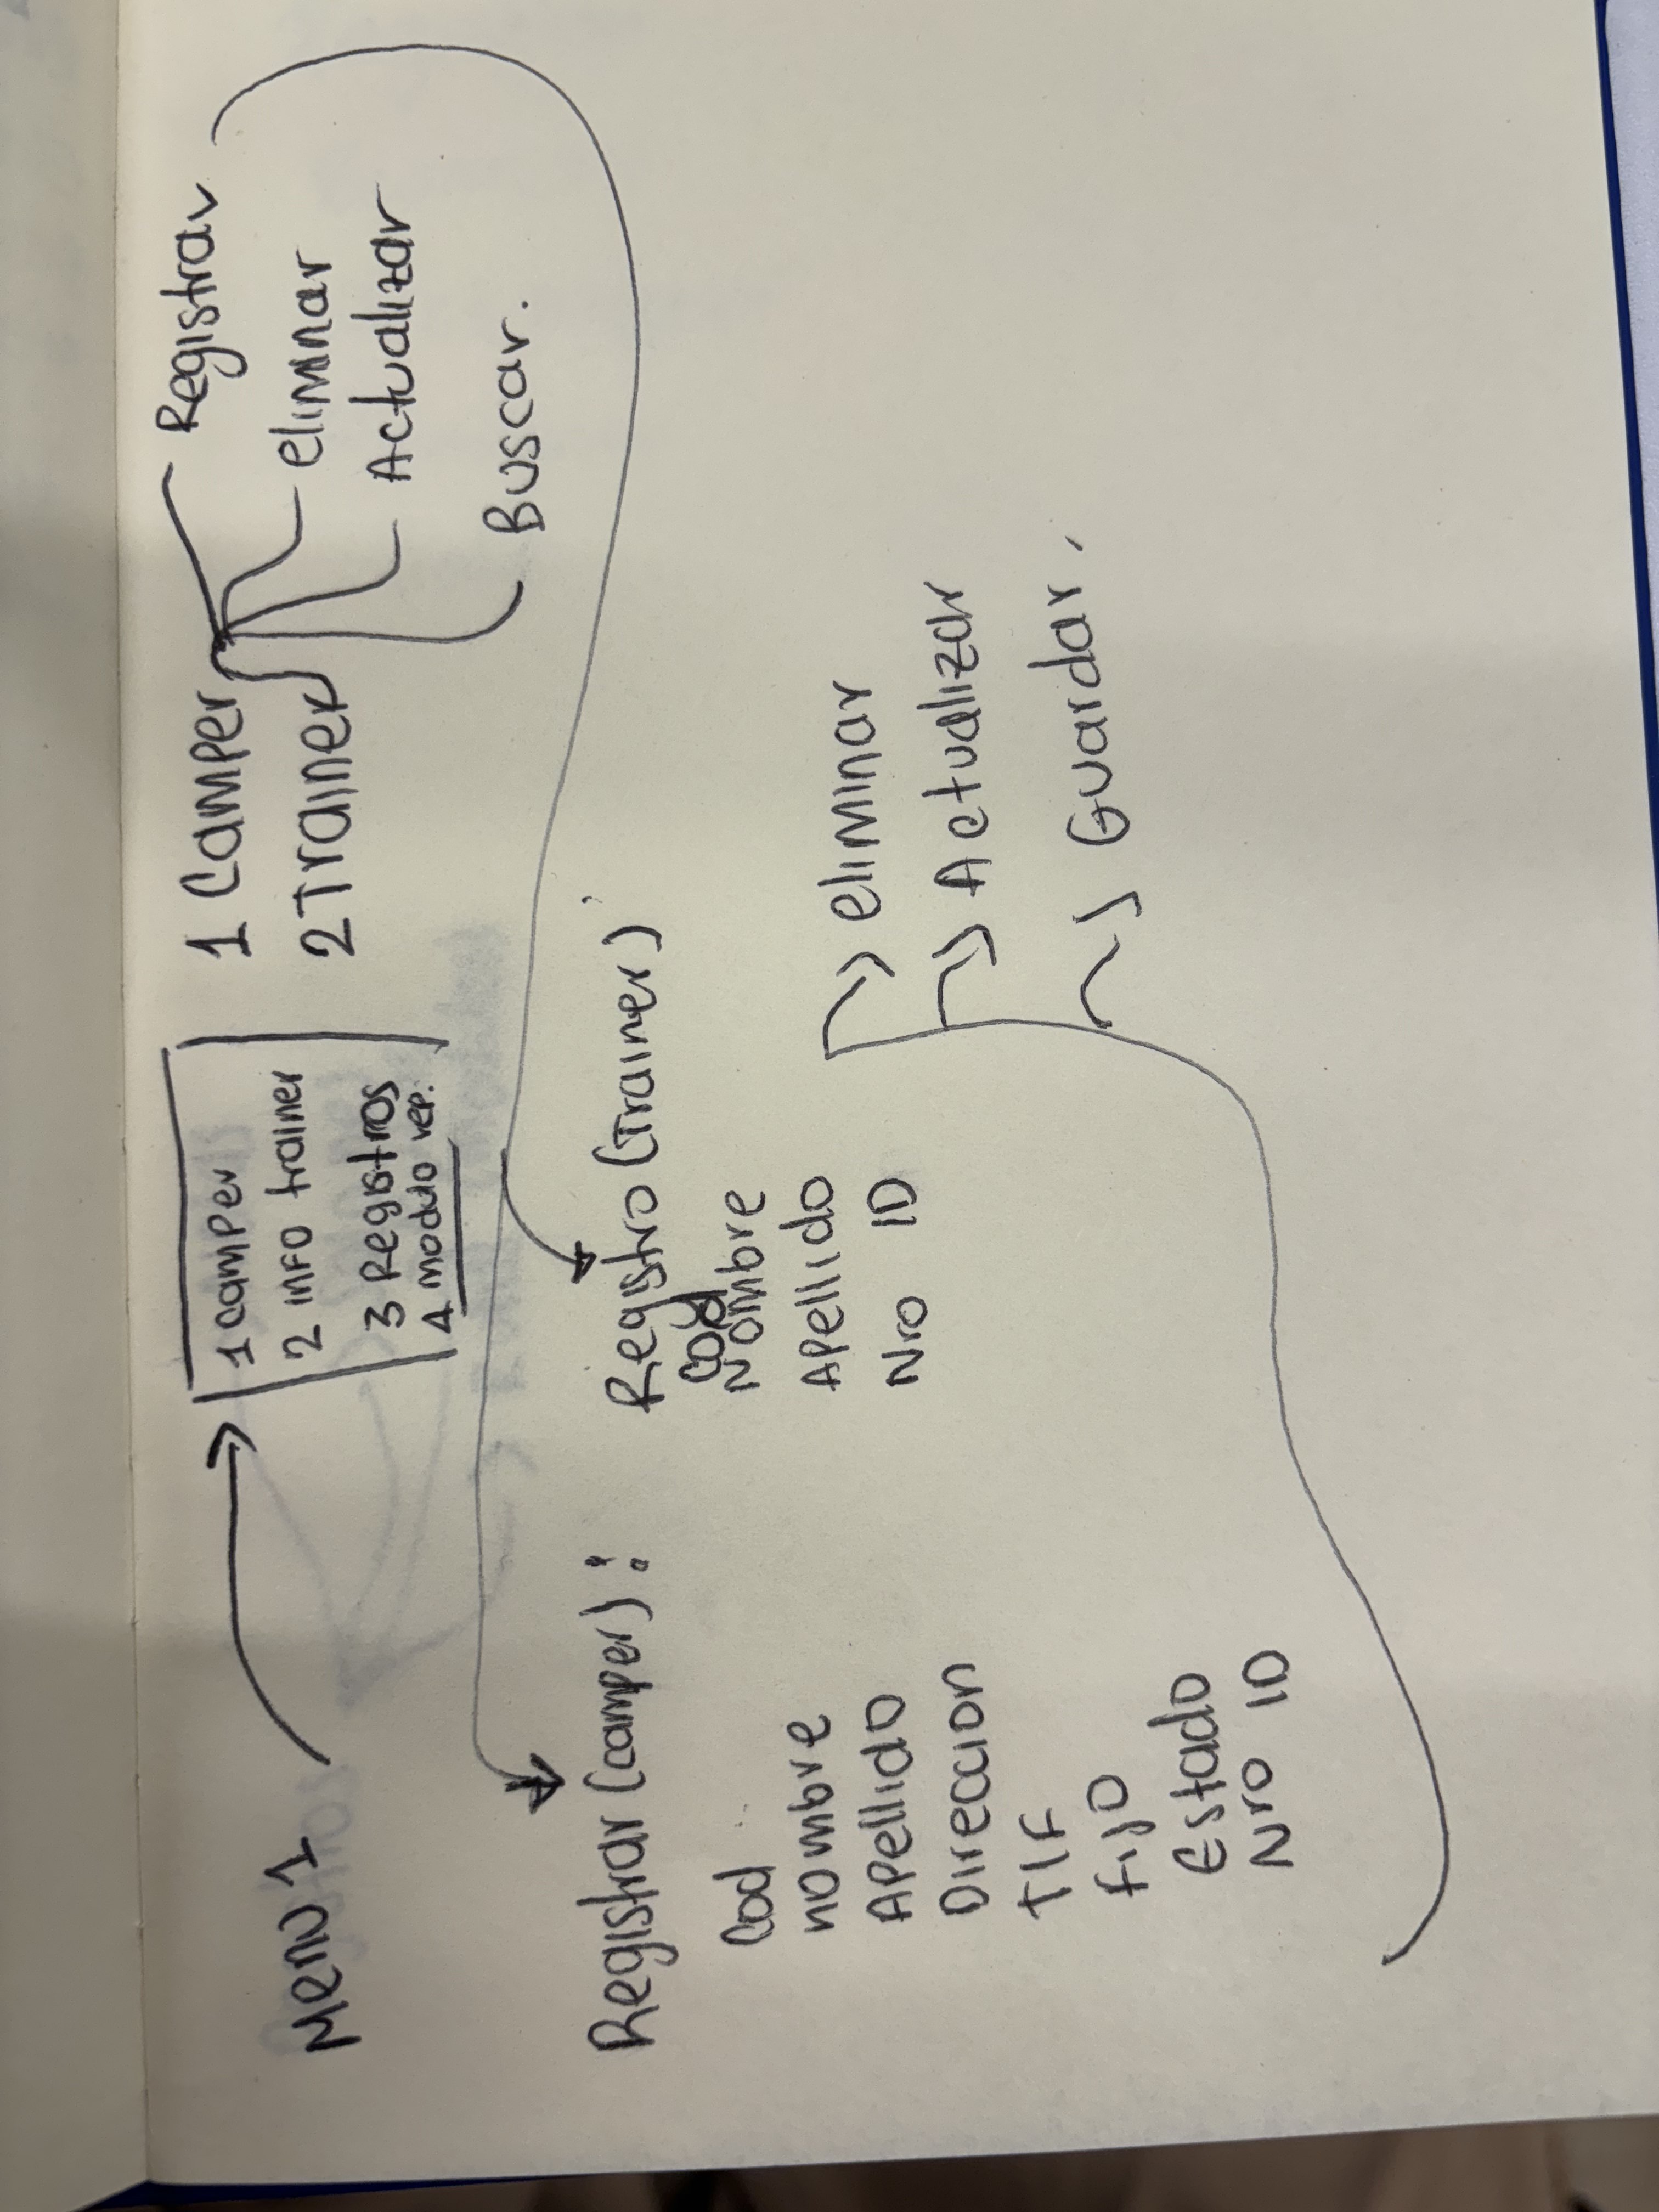 Menu 1
1 camper
2 info trainer
3 Registros
4 modulo rep.
1 Camper
2 Trainer
Registrar
eliminar
Actualizar
Buscar.
Registrar (camper):
Cod
nombre
Apellido
Direccion
Tlf
Fijo
Estado
Nro ID
Registro (Trainer)
Cod
Nombre
Apellido
Nro ID
eliminar
Actualizar
Guardar.